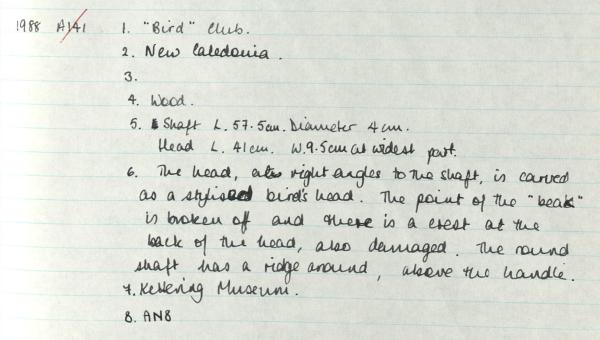 1988 A141 1. "Bird" Club.
2. New Caledonia.
3.
4. Wood.
5. Shaft L. 57.5cm. Diameter 4cm.
Head L. 41cm. W. 9.5cm at widest part.
6. The head, at right angles to the shaft, is carved
as a stylised bird's head. The point of the "beak"
is broken off and there is a crest at the
back of the head, also damaged. The round
shaft has a ridge around, above the handle.
7. Kettering Museum.
8. AN8